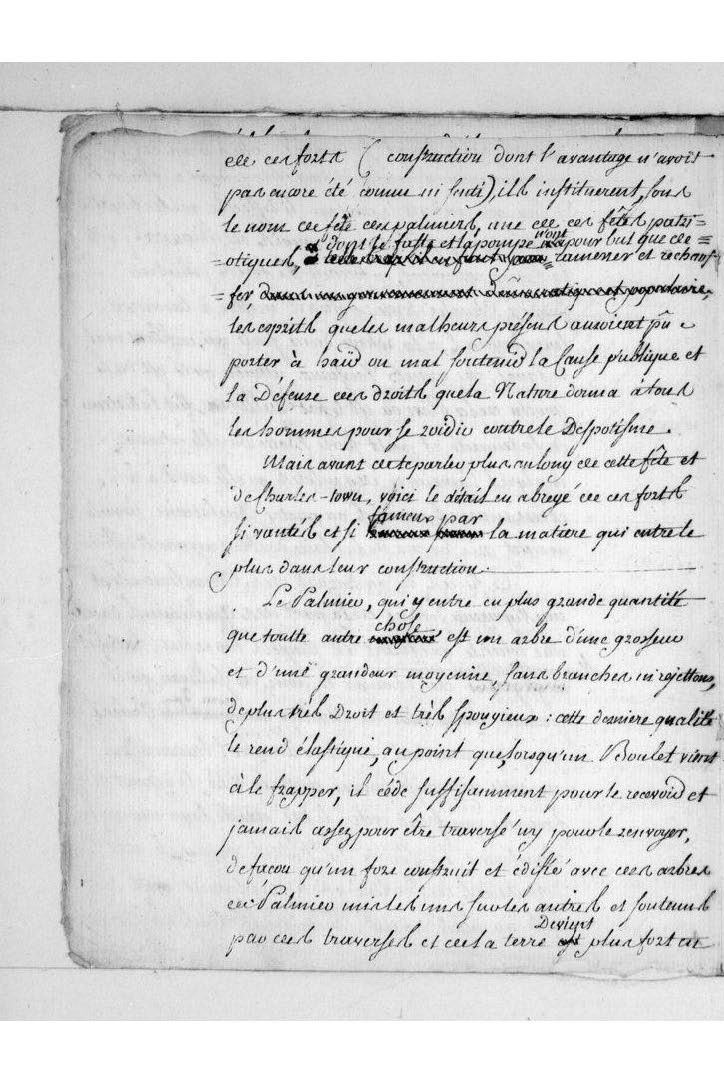 de ces forts ( construction dont l'avantage n'avoit
pas encore été connu ni senti), ils instituerent, sous
le nom de fête des palmiers, une de ces fêtes patri=
=otiques, dont le faste et la pompe n'ont pour but que de =
ramener et rechauf=
=fer, dans un gouvernement démocratique et populaire,
les esprits que les malheurs présens auroient pû
porter à haïr ou mal soutenir la Cause publique et
la Défense des droits que la Nature donna à tous
les hommes pour se roidir contre le Despotisme.
Mais avant de te parler plus au long de cette fête et
de Charles-town, voici le détail en abregé de ces forts
si vantés et si fameux par la matiere qui entre le
plus dans leur construction.
Le Palmier, qui y entre en plus grande quantité
que toutte autre chose est un arbre d'une grosseur
et d'une grandeur moyenne, sans branches ni rejettons,
de plus très Droit et très spongieux : cette derniere qualité
le rend élastique, au point que, lorsqu'un Boulet vient
à le frapper, il céde suffisamment pour le recevoir et
jamais assez pour être traversé ny pour le renvoyer,
de façon qu'un fort construit et édifié avec des arbres
de Palmier mis les uns sur les autres et soutenus
par des traverses et de la terre Devient plus fort en